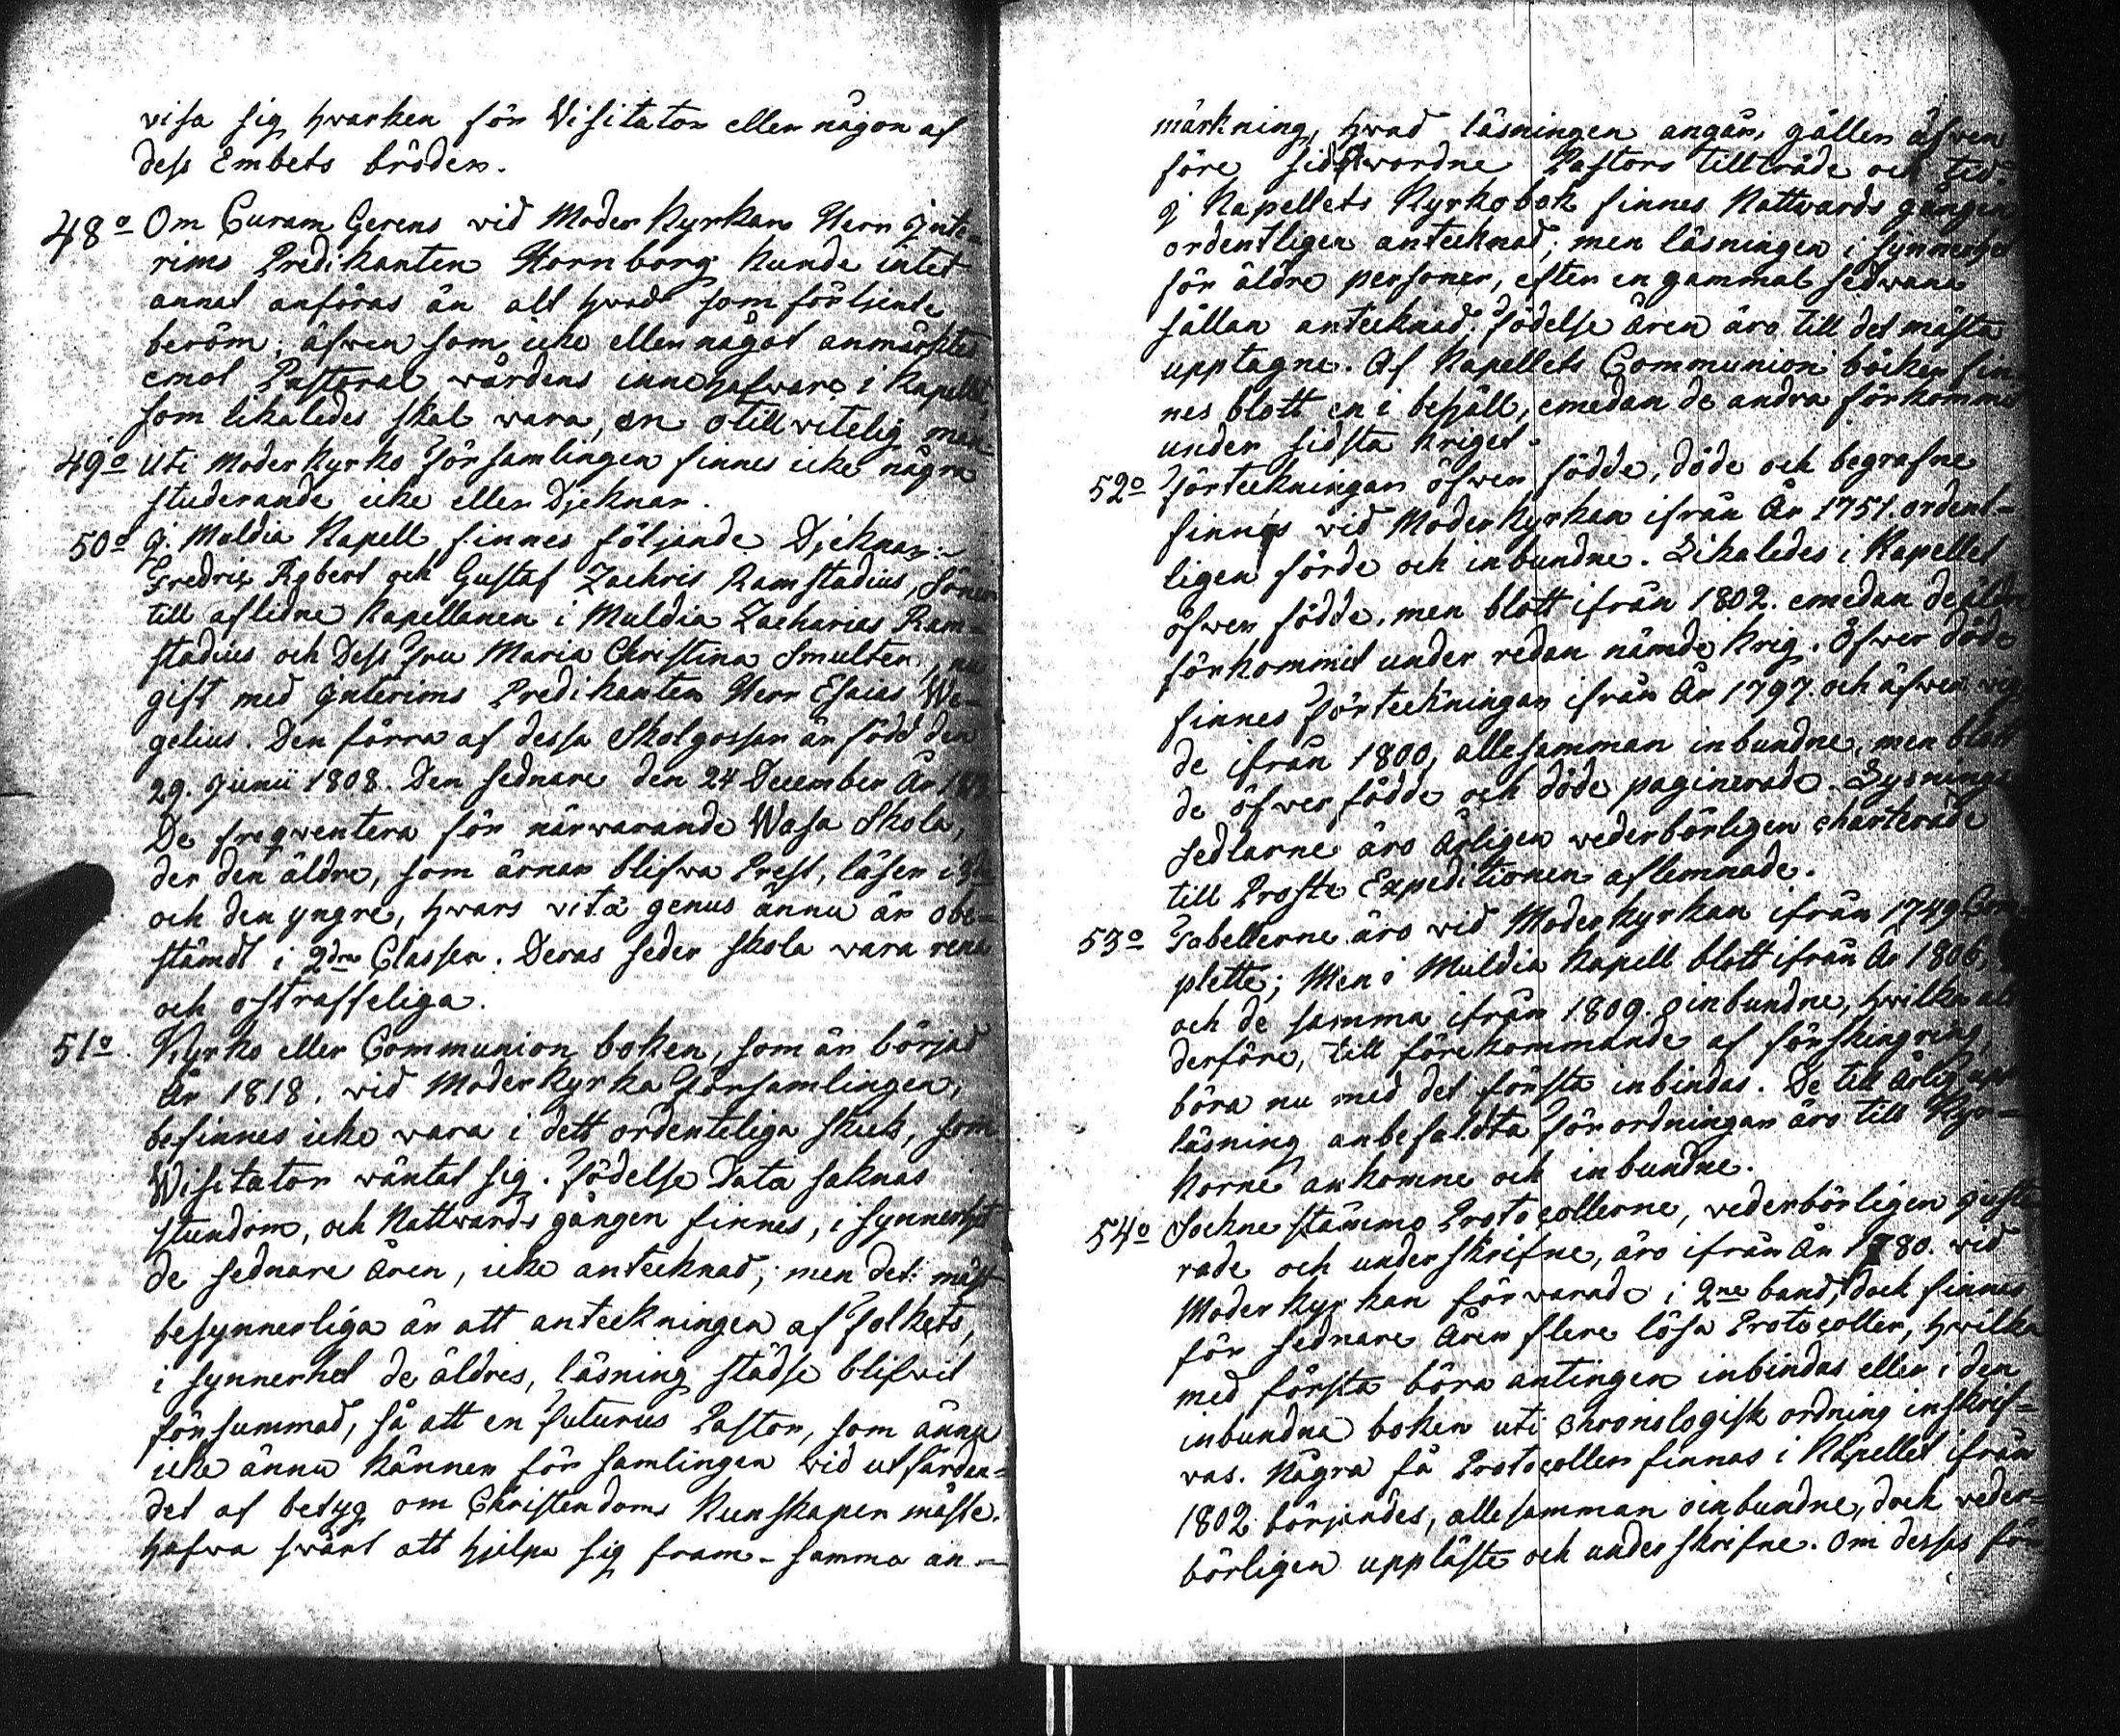 visa sig hvarken för Visitator eller någon af
dess Embets bröder.
48o Om Curam Gerens vid Moder Kyrkan Herr Inte-
rims Predikanten Hornborg kunde intet
annat anföras än alt hvad som förtjent
beröm; äfven som icke eller något anmärktes
emot Pastoral vårdens innehafvare i Kapellet,
som likaledes skal wara, en otillvitelig man.
49o Uti Moderkyrko Församlingen finnes icke några
studerande icke eller Djeknar.
50o I Muldia Kapell finnes följande Djeknar:
Fredric Robert och Gustaf Zachris Ramstadius, Söner
till aflidne Kapellanen i Muldia Zacharias Ram-
stadius och Dess Fru Maria Christina Smulter, nu
gift med Interims Predikanten Herr Esaias We-
gelius. Den förra af dessa Skolgossar är född den
29. Junii 1808. Den sednare den 24 December År
De freqventera för närwarande Wasa Skola,
der den äldre, som ärnar blifwa Prest, läser i 3die
och den yngre, hvars vitæ genus ännu är obe-
stämdt i 2dra Classen. Deras seder skola wara rena
och ostraffeliga.
51o Kyrko eller Communion boken, som är börjad
År 1818. vid Moderkyrka Församlingen,
befinnes icke wara i dett ordenteliga skick, som
Visitator wäntat sig. Födelse Data saknas
stundom, och Nattwards gången finnes, i synnerhet
de sednare Åren, icke antecknad; men det mäst
besynnerliga är att anteckningen af Folkets,
i synnerhet de äldres, läsning städse blifwit
försummad, så att en Futurus Pastor, som ännu
icke ännu känner församlingen vid utfärdan-
det af betyg om Christendoms Kunskapen måste
hafwa swårt att hjelpa sig fram - samma an-
märkning, hvad läsningen angår, gäller äfwen
före sidstwordne Pastors tillträde och tid.
I Kapellets Kyrkobok finnes Nattwards gången
ordentligen antecknad; men läsningen i synnerhet
för äldre personer, efter en gammal sedwana
sällan antecknad. Födelse Åren äro till det mästa
upptagne. Af Kapellets Communion böcker fin-
nes blott en i behåll, emedan de andra förkommo
under sidsta kriget.
52o Förteckningar öfwer födde, döde och begrafne
finnes vid Moderkyrkan ifrån År 1751. ordent-
ligen förde och inbundne. Likaledes i Kapellet
öfwer födde, men blott ifrån 1802. emedan de äldre
förkommit under redan nämde krig. Öfwer döde
finnes Förteckningar ifrån År 1797. och äfwen vig-
de ifrån 1800, allesamman inbundne, men blott
de öfwer födde och döde paginerade. Lysnings
sedlarne äro årligen wederbörligen charterade
till Prosts Expeditionen aflemnade.
53o Tabellerne äro vid Moderkyrkan ifrån 1749 Com-
plette; Men i Muldia Kapell blott ifrån År 1806,
och de samma ifrån 1809. oinbundne, hwilka alt
derföre, till förekommande af förskingring,
böra nu med det första inbindas. De till årlig upp-
läsning anbefaldta Förordningar äro till Kyr-
korne ankomne och inbundne.
54o Sockne stämmo Protocollerne, vederbörligen juste-
rade och underskrifne, äro ifrån År 1780. vid
Moderkyrkan förwarade i 2ne band, dock finnes
för sednare Åren flere lösa Protocoller, hwilka
med första böra antingen inbindas eller i den
inbundna boken uti chronologisk ordning inskrif-
vas. Några få Protocoller finnas i Kapellet ifrån
1802 börjandes, allesamman oinbundne, dock veder-
börligen uppläste och underskrifne. Om dessas för-